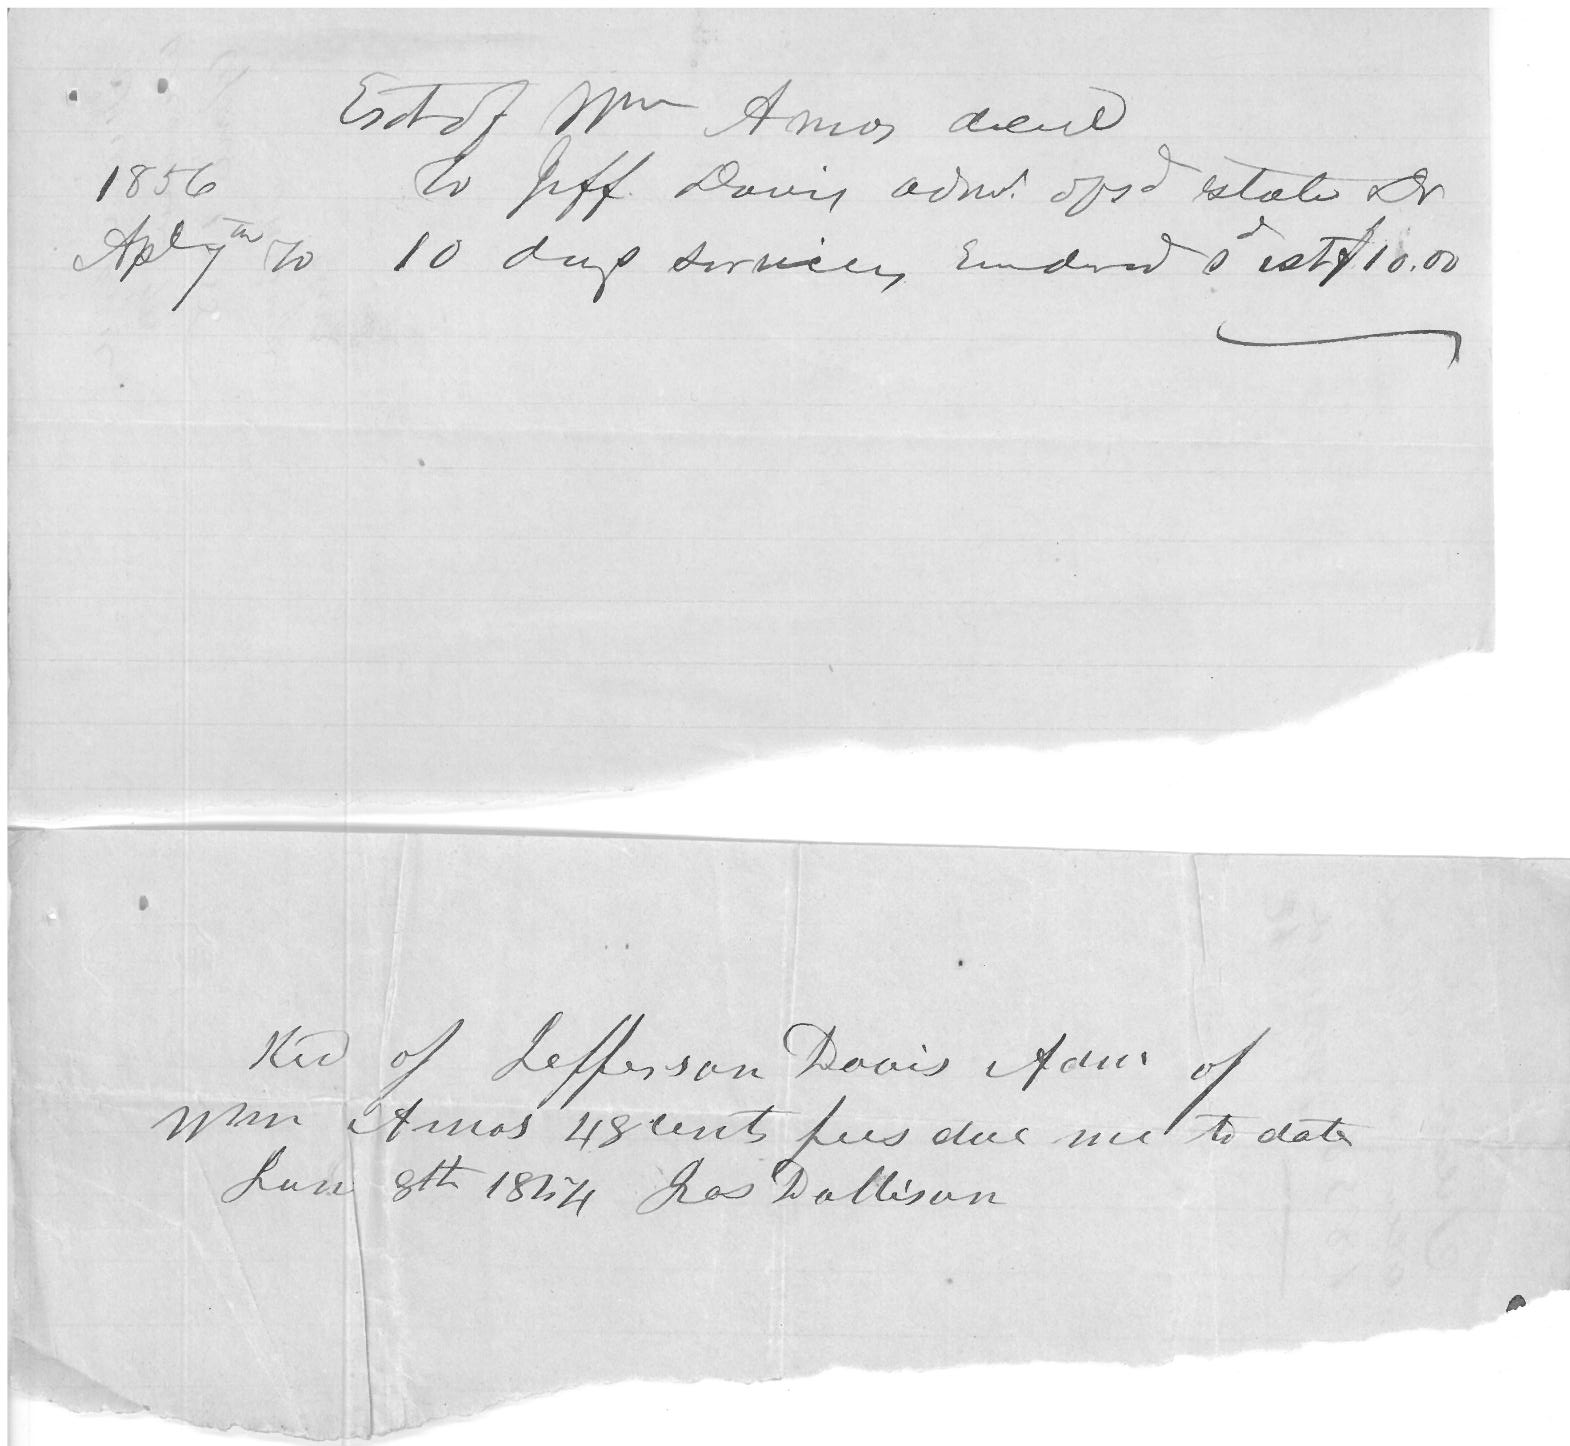 Est of Wm Amos decd
1856 To Jeff Davis admr. of sd estate Dr
Apl 7th To 10 days services rendered sd est $10.00
Recd of Jefferson Davis Admr of
Wm Amos 48 cents fees due me to date
Jan 8th 1854 Jas Dallison